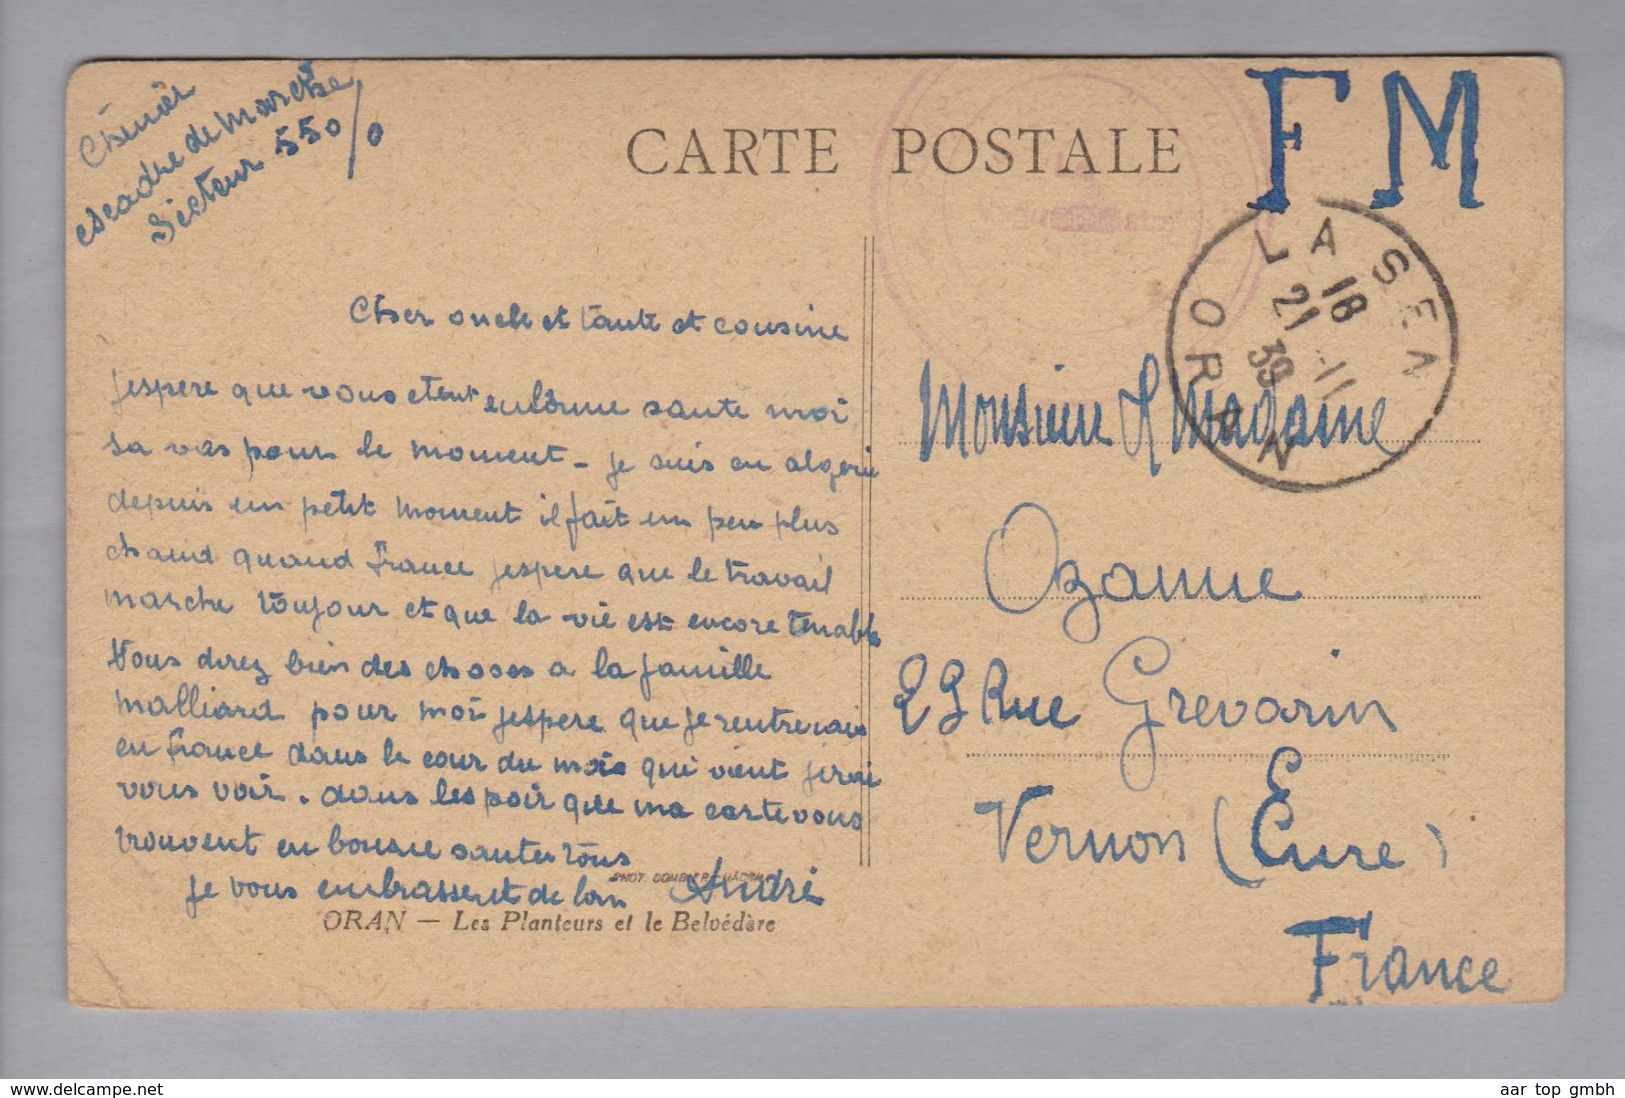 Chenier
escadre de marche
Secteur 550/0
CARTE POSTALE
FM
LA SENIA
18
21 -11
39
ORAN
Cher oncle et tante et cousine
jespere que vous etent en bonne sante moi
sa vas pour le moment - je suis en algerie
depuis un petit moment il fait un peu plus
chaud quand france jespere que le travail
marche toujour et que la vie est encore tenable
Vous direz bien des choses a la famille
malliard pour moi jespere que je rentrerais
en france dans le cour du mois qui vient jirai
vous voir. dans lespoir que ma carte vous
trouvent en bonne santes tous
je vous embrasse et de loin André
PHOT. COMBIER MÂCON
ORAN — Les Planteurs et le Belvédère
Monsieur & Madame
Ozanne
29 Rue Grevarin
Vernon (Eure)
France
www.delcampe.net
aar top gmbh